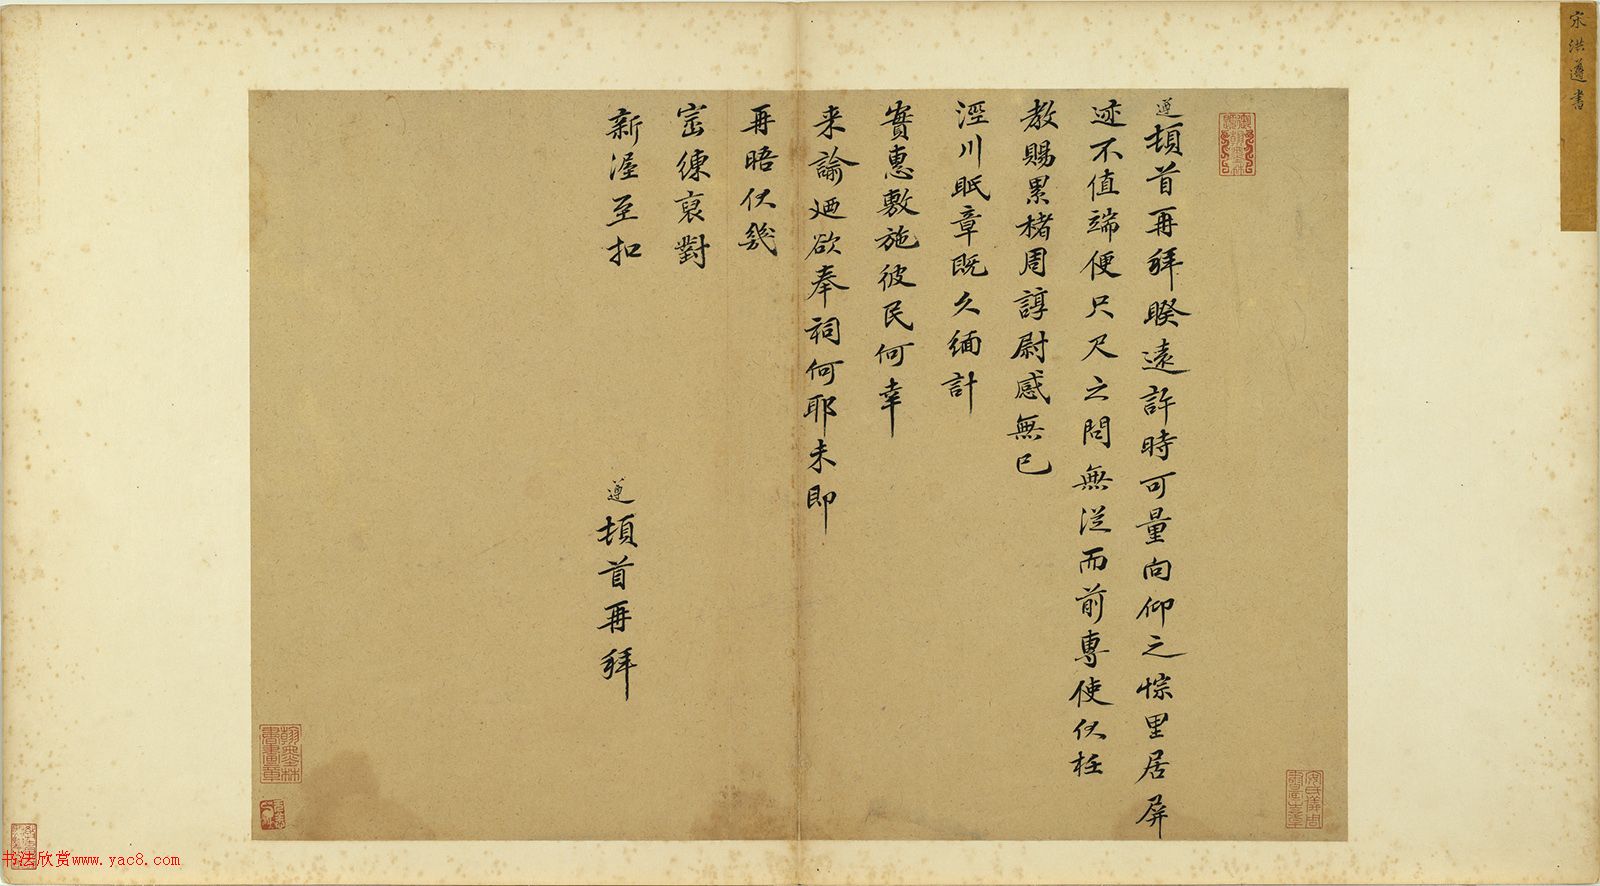 宋洪遵書
遵頓首再拜睽遠許時可量向仰之悰里居屏
迹不值端便尺尺之問無從而前專使伏枉
教賜累楮周諄尉感無已
涇川眂章既久緬計
實惠敷施彼民何幸
来諭廼欲奉祠何耶未即
再晤伏幾
密練衷對
新渥至扣
遵頓首再拜
安氏儀周書畫之章
翰墨林書畫章
书法欣赏www.yac8.com